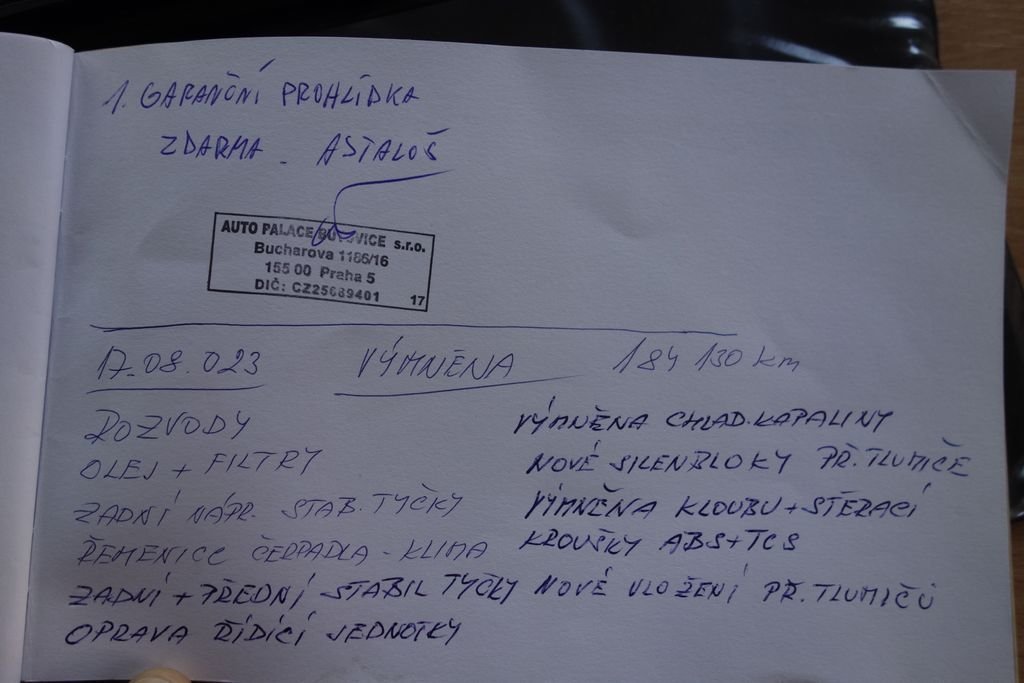 1. GARANČNÍ PROHLÍDKA
ZDARMA - ASTALOŠ
AUTO PALACE BUTOVICE s.r.o.
Bucharova 1186/16
155 00 Praha 5
DIČ: CZ25689401 17
17.08.023 VÝMNĚNA 184 130 km
ROZVODY
OLEJ + FILTRY
ZADNÍ NÁPR. STAB. TYČKY
ŘEMENICE ČERPADLA - KLIMA
ZADNÍ + PŘEDNÍ STABIL TYČKY
OPRAVA ŘÍDÍCÍ JEDNOTKY
VÝMNĚNA CHLAD. KAPALINY
NOVÉ SILENBLOKY PŘ. TLUMIČE
VÝMNĚNA KLOUBU + STĚRACÍ
KROUŠKY ABS + TCS
NOVÉ ULOŽENÍ PŘ. TLUMIČŮ